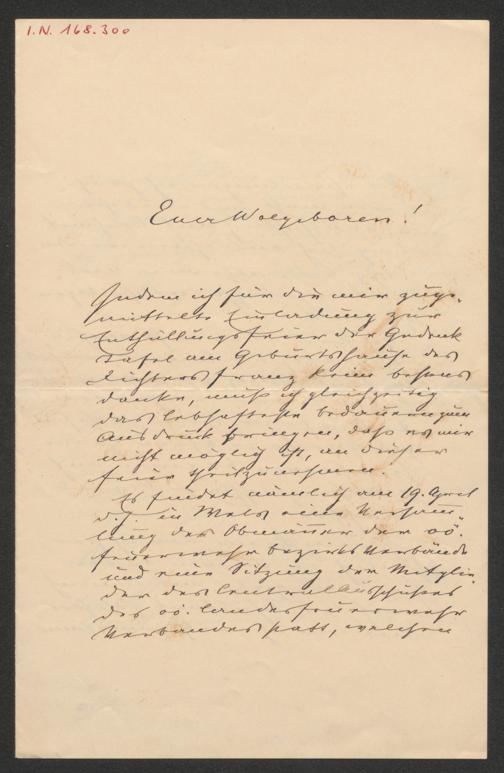 I.N. 168.300
Euer Wolgeboren!
Indem ich für die mir zuge-
mittelte Einladung zur
Enthüllungsfeier der Gedenk
Tafel am Geburtshause des
Dichters Franz Keim bestens
danke, muß ich gleichzeitig
das lebhafteste Bedauern zum
Ausdruck bringen, daß es mir
nicht möglich ist, an dieser
Feier theilzunehmen.
Es findet nämlich am 19. April
d. J. in Wels eine Versam̄-
lung der Obmäner der oö.
Feuerwehr Bezirks Verbände
und eine Sitzung der Mitglie
der des Central Ausschußes
des oö. Landesfeuerwehr
Verbandes statt, welchen